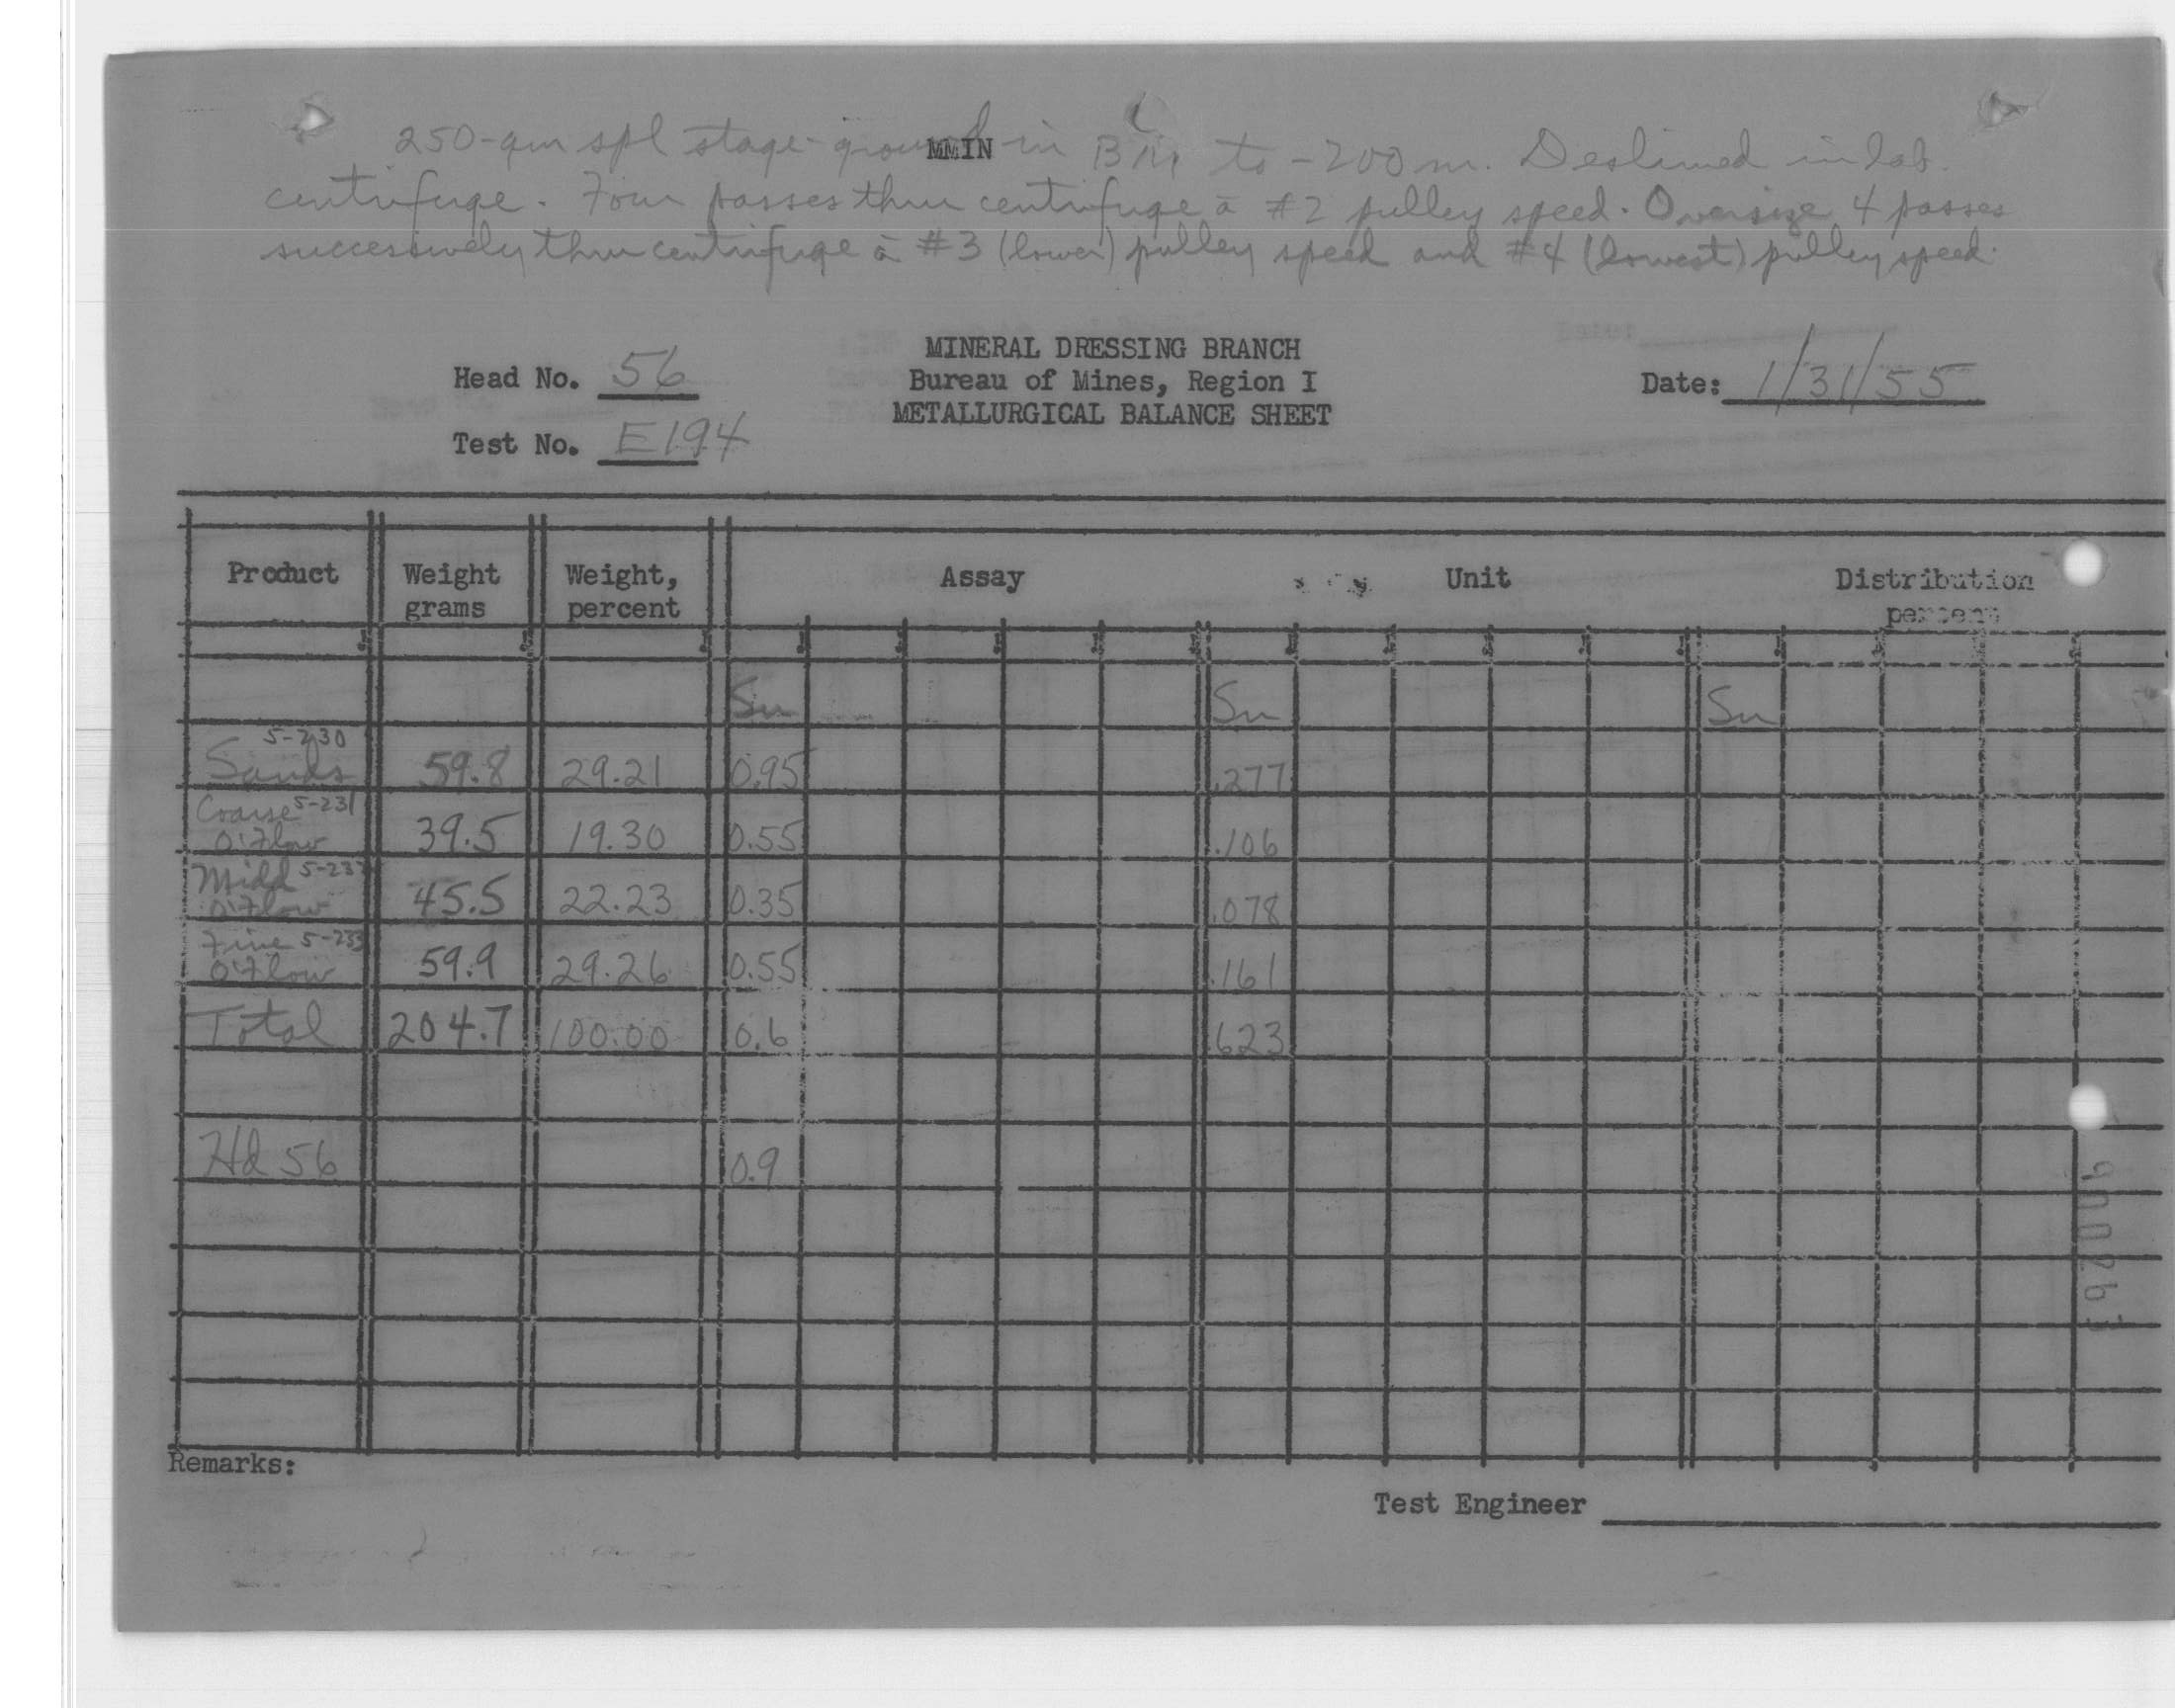 250-gm spl stage-ground in BM to -200m. Deslimed in lab.
MMIN
centrifuge. Four passes thru centrifuge @ #2 pulley speed. Oversize 4 passes
successively thru centrifuge @ #3 (lower) pulley speed and #4 (lowest) pulley speed.
MINERAL DRESSING BRANCH
Head No. 56 Bureau of Mines, Region I Date: 1/31/55
METALLURGICAL BALANCE SHEET
Test No. E194
Product Weight grams Weight, percent Assay Unit Distribution percent
Sn Sn Sn
5-230
Sands 59.8 29.21 0.95 .277
Coarse 5-231
O'Flow 39.5 19.30 0.55 .106
Midd 5-232
O'Flow 45.5 22.23 0.35 .078
Fine 5-233
O'Flow 59.9 29.26 0.55 .161
Total 204.7 100.00 0.6 .623
Hd 56 0.9
Remarks:
Test Engineer